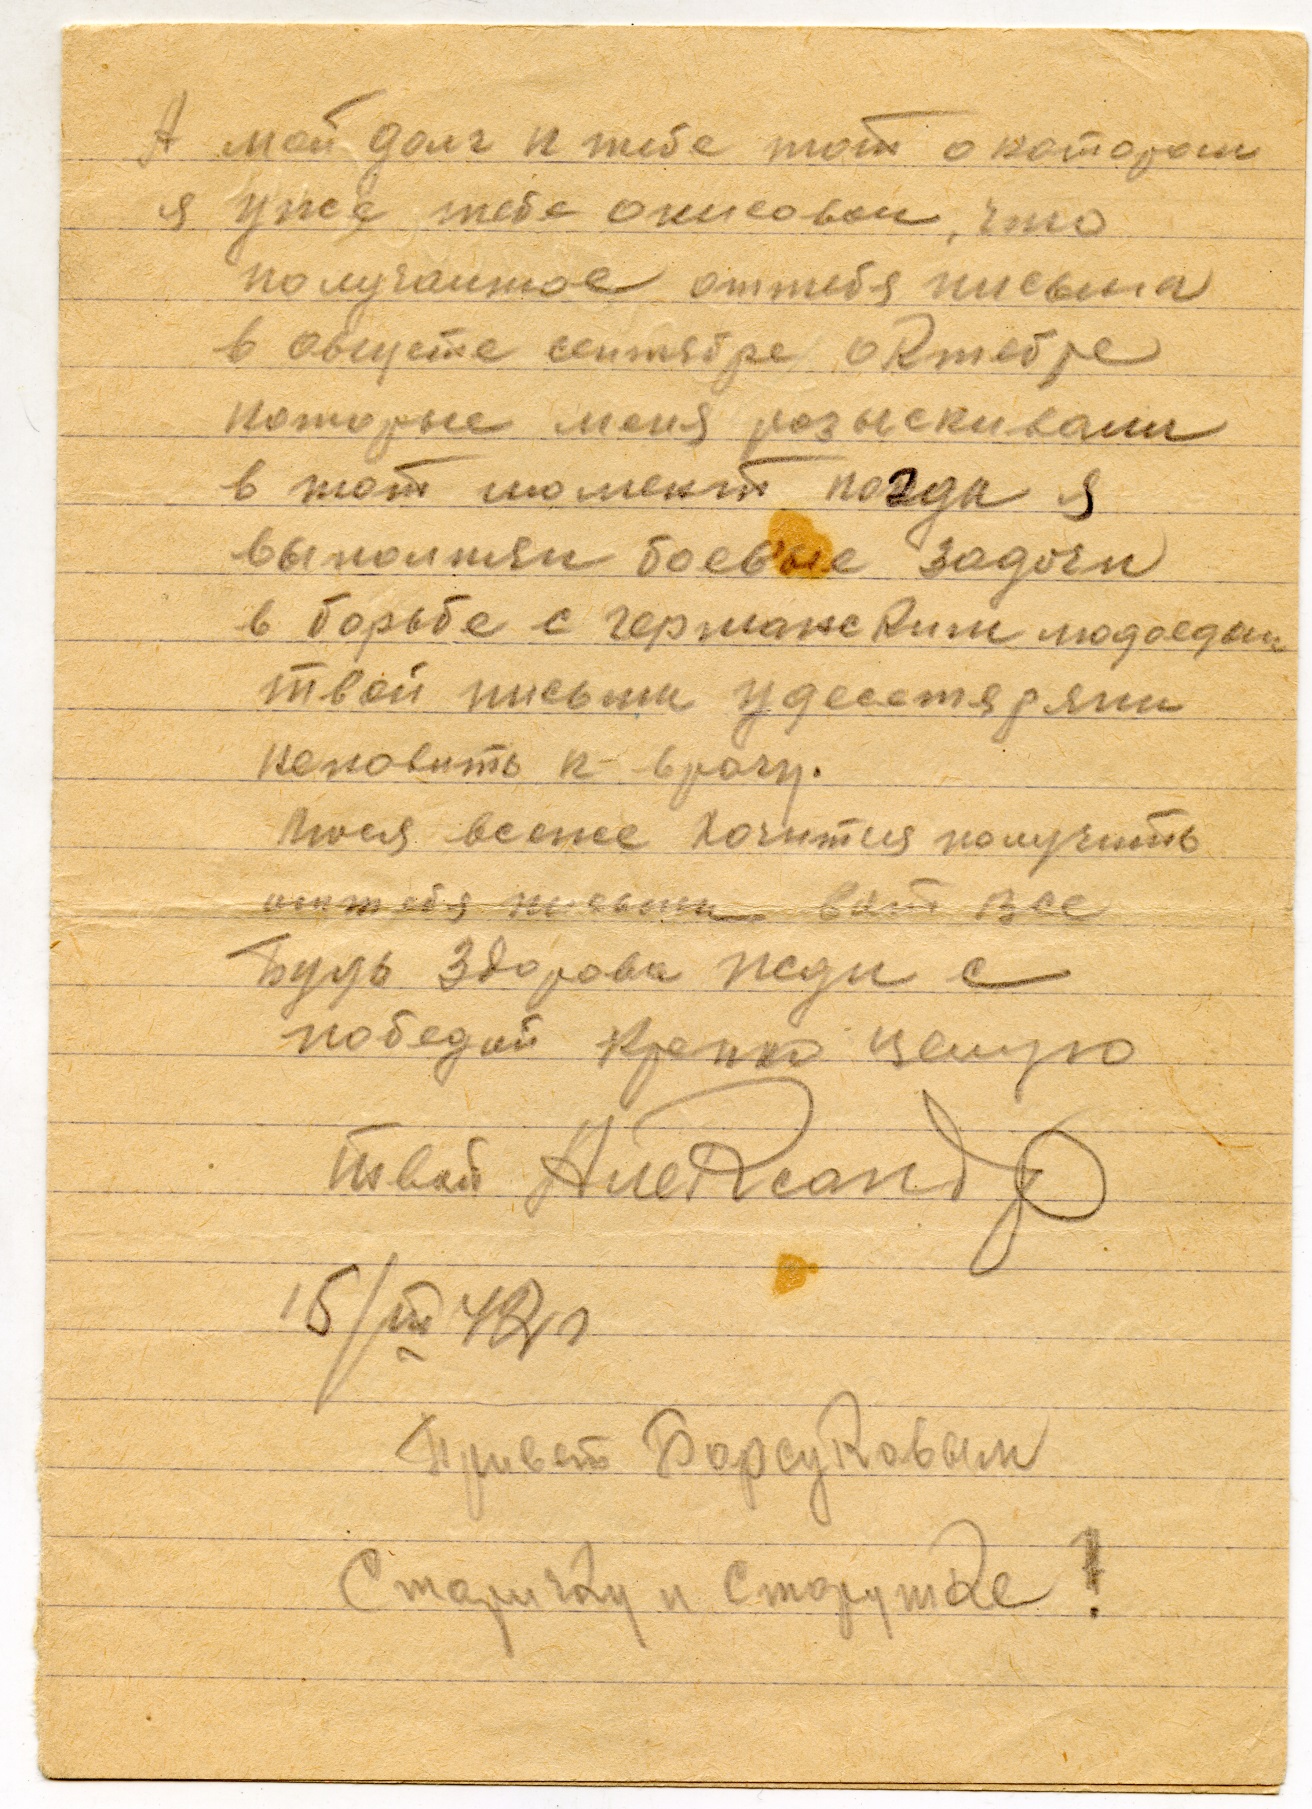 А мой долг к тебе тот о котором
я уже тебе описовал, что
получаиное оттебя письма
в августе сентябре октебре
которые меня розыскивали
в тот момент когда я
выполнял боевые задочи
в борьбе с германским людоедам
твои письма удесетяряли
неновить к врагу.
Люся всеже хочится получить
оттебя письма. вот все
Будь Здорова жди с
победой Крепко целую
твой Александр
15/III 42 г
Привет Борсуковым
Старичку и Старушке!